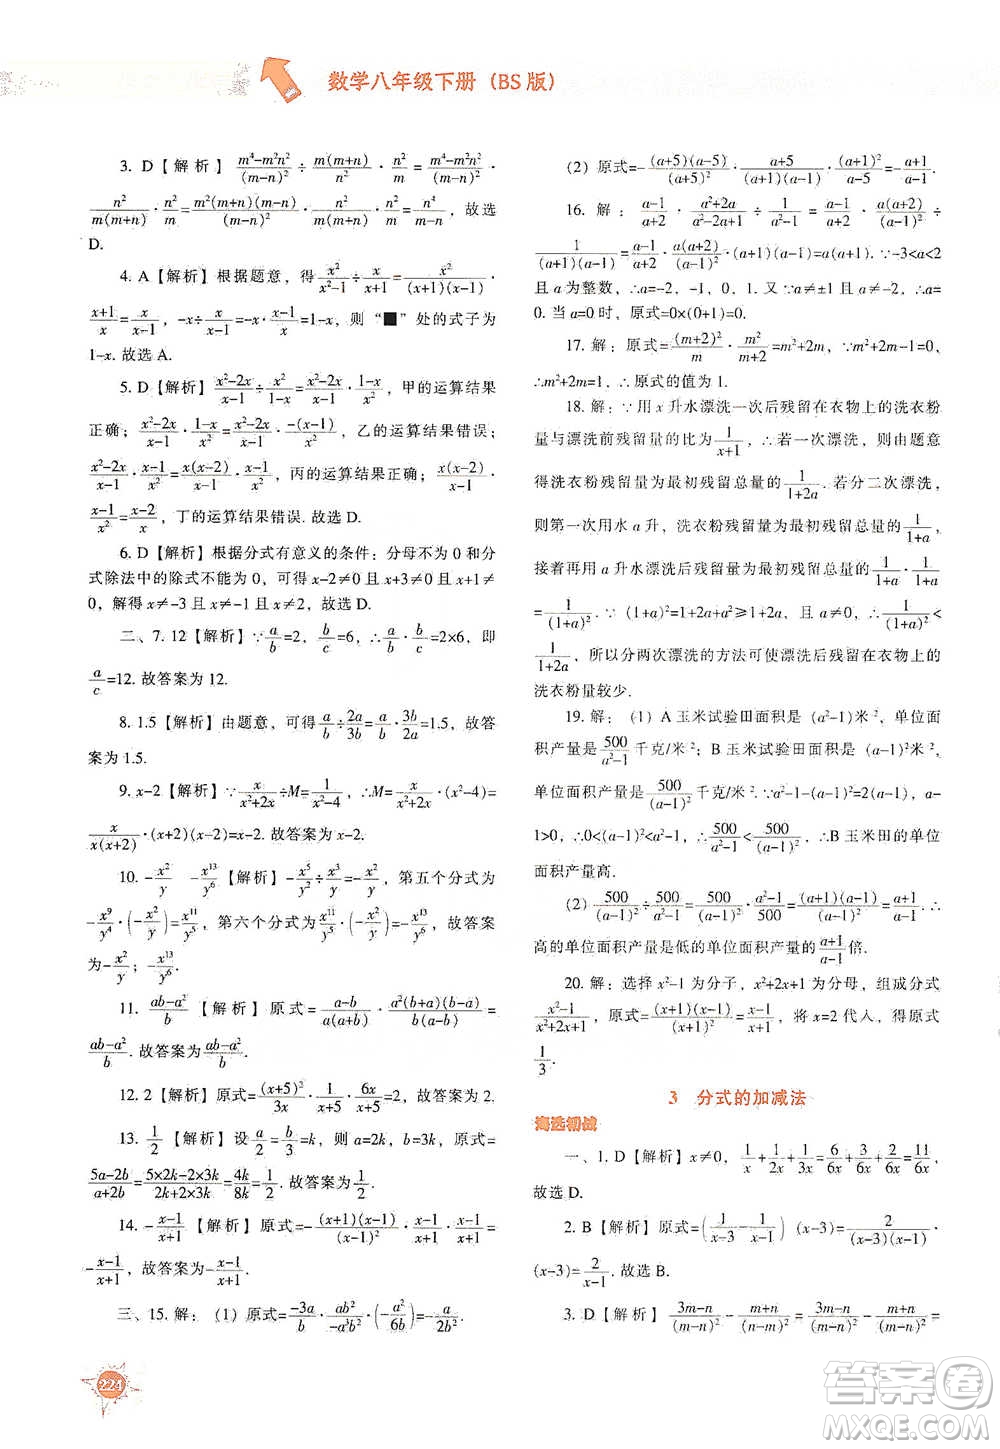 数学八年级下册（BS版）
3. D【解析】 (m⁴-m²n²)/(m-n)² ÷ m(m+n)/n² · n²/m = (m⁴-m²n²)/(m-n)² ·
n²/m(m+n) · n²/m = m²(m+n)(m-n)/(m-n)² · n²/m(m+n) · n²/m = ，故选
D.
4. A【解析】根据题意，得 x²/(x²-1) ÷ x/(x+1) = x²/(x+1)(x-1) ·
(x+1)/x = x/(x-1)，-x÷x/(x-1) = -x·(x-1)/x = 1-x，则“■”处的式子为
1-x. 故选 A.
5. D【解析】∵ (x²-2x)/(x-1) ÷ x²/(1-x) = (x²-2x)/(x-1) · (1-x)/x²，甲的运算结果
正确；(x²-2x)/(x-1) · (1-x)/x² = (x²-2x)/(x-1) · -(x-1)/x²，乙的运算结果错误；
(x²-2x)/(x-1) · (x-1)/x² = x(x-2)/(x-1) · (x-1)/x²，丙的运算结果正确；
(x-1)/x² = (x-2)/x，丁的运算结果错误. 故选 D.
6. D【解析】根据分式有意义的条件：分母不为 0 和分
式除法中的除式不能为 0，可得 x-2≠0 且 x+3≠0 且 x+1≠
0，解得 x≠-3 且 x≠-1 且 x≠2，故选 D.
二、7. 12【解析】∵a/b=2，b/c=6，∴a/b·b/c=2×6，即
a/c=12. 故答案为 12.
8. 1.5【解析】由题意，可得 a/b÷2a/3b=a/b·3b/2a=1.5，故答
案为 1.5.
9. x-2【解析】∵x/(x²+2x)÷M=1/(x²-4)，∴M=x/(x²+2x)·(x²-4)=
x/x(x+2)·(x+2)(x-2)=x-2. 故答案为 x-2.
10. -x²/y x¹³/y⁶【解析】-x⁵/y²÷x³/y=-x²/y，第五个分式为
-x⁹/y⁴·(-x²/y)=x¹¹/y⁵，第六个分式为x¹¹/y⁵·(-x²/y)=-x¹³/y⁶，故答案
为-x²/y；-x¹³/y⁶.
11. (ab-a²)/b【解析】原式=(a-b)/a(a+b)·a²(b+a)(b-a)/=
(ab-a²)/b. 故答案为(ab-a²)/b.
12. 2【解析】原式=(x+5)²/3x·1/(x+5)·6x/(x+5)=2. 故答案为 2.
13. 1/2【解析】设a/2=b/3=k，则 a=2k，b=3k，∴
(5a-2b)/(a+2b)=(5×2k-2×3k)/(2k+2×3k)=4k/8k=1/2. 故答案为1/2.
14. -(x-1)/(x+1)【解析】原式=-(x+1)(x-1)/(x-1)²·(x-1)/(x+1)·(x-1)/(x+1)=
-(x-1)/(x+1). 故答案为-(x-1)/(x+1).
三、15. 解：（1）原式=-3a/b·ab²/-a³b²·(-a²/6b)=-a/2b².
（2）原式=-(a+5)(a-5)/(a+5)²·(a+5)/(a+1)(a-1)·(a+1)²/(a-5)=-(a+1)/(a-1).
16. 解：(a-1)/(a+2)·(a²+2a)/(a²-2a+1)÷1/(a²-1)=(a-1)/(a+2)·a(a+2)/(a-1)²÷
1/(a+1)(a-1)=(a-1)/(a+2)·a(a+2)/(a-1)²·(a+1)(a-1)=a(a+1). ∵-3<a<2
且 a 为整数，∴a=-2，-1，0，1. 又∵a≠±1 且 a≠-2，∴a=
0. 当 a=0 时，原式=0×(0+1)=0.
17. 解：原式=(m+2)²/m·m²/(m+2)=m²+2m，∵m²+2m-1=0，
∴m²+2m=1，∴原式的值为 1.
18. 解：∵用 x 升水漂洗一次后残留在衣物上的洗衣粉
量与漂洗前残留量的比为1/(x+1)，∴若一次漂洗，则由题意
得洗衣粉残留量为最初残留量的1/(1+2a). 若分二次漂洗，
则第一次用水 a 升，洗衣粉残留量为最初残留总量的1/(1+a)，
接着再用 a 升水洗后残留量为最初残留量的1/(1+a)·1/(1+a)
=1/(1+a)². ∵(1+a)²=1+2a+a²≥1+2a，∴1/(1+a)²<
1/(1+2a)，所以分两次漂洗的方法可使漂洗后残留在衣物上的
洗衣粉量较少.
19. 解：（1）A 玉米试验田面积是（a²-1）米²，单位面
积产量是500/(a²-1)千克/米²；B 玉米试验田面积是（a-1）²米²，
单位面积产量是500/(a-1)²千克/米². ∵a²-1-(a-1)²=2(a-1)，a-
1>0，∴0<(a-1)²<a²-1，∴500/(a²-1)<500/(a-1)². ∴B 玉米田的单位
面积产量高.
（2）500/(a-1)²÷500/(a²-1)=500/(a-1)²·(a²-1)/500=(a+1)(a-1)/(a-1)²=(a+1)/(a-1). ∴
高的单位面积产量是低的单位面积产量的(a+1)/(a-1)倍.
20. 解：选择 x²-1 为分子，x²+2x+1 为分母，组成分式
(x²-1)/(x²+2x+1)，原式=(x+1)(x-1)/(x+1)²=(x-1)/(x+1)，将 x=2 代入，得原式
1/3.
3 分式的加减法
海选初战
一、1. D【解析】x≠0，1/x+1/2x+1/3x=6/6x+3/6x+2/6x=11/6x，
故选 D.
2. B【解析】原式=(1/(x-3)-1/(x-1))(x-3)=2/(x-3)(x-1)·
(x-3)=2/(x-1). 故选 B.
3. D【解析】(3m-n)/(m-n)²-(m+n)/(n-m)²=(3m-n)/(m-n)²-(m+n)/(m-n)²=
224
答案圈
MXQE.COM